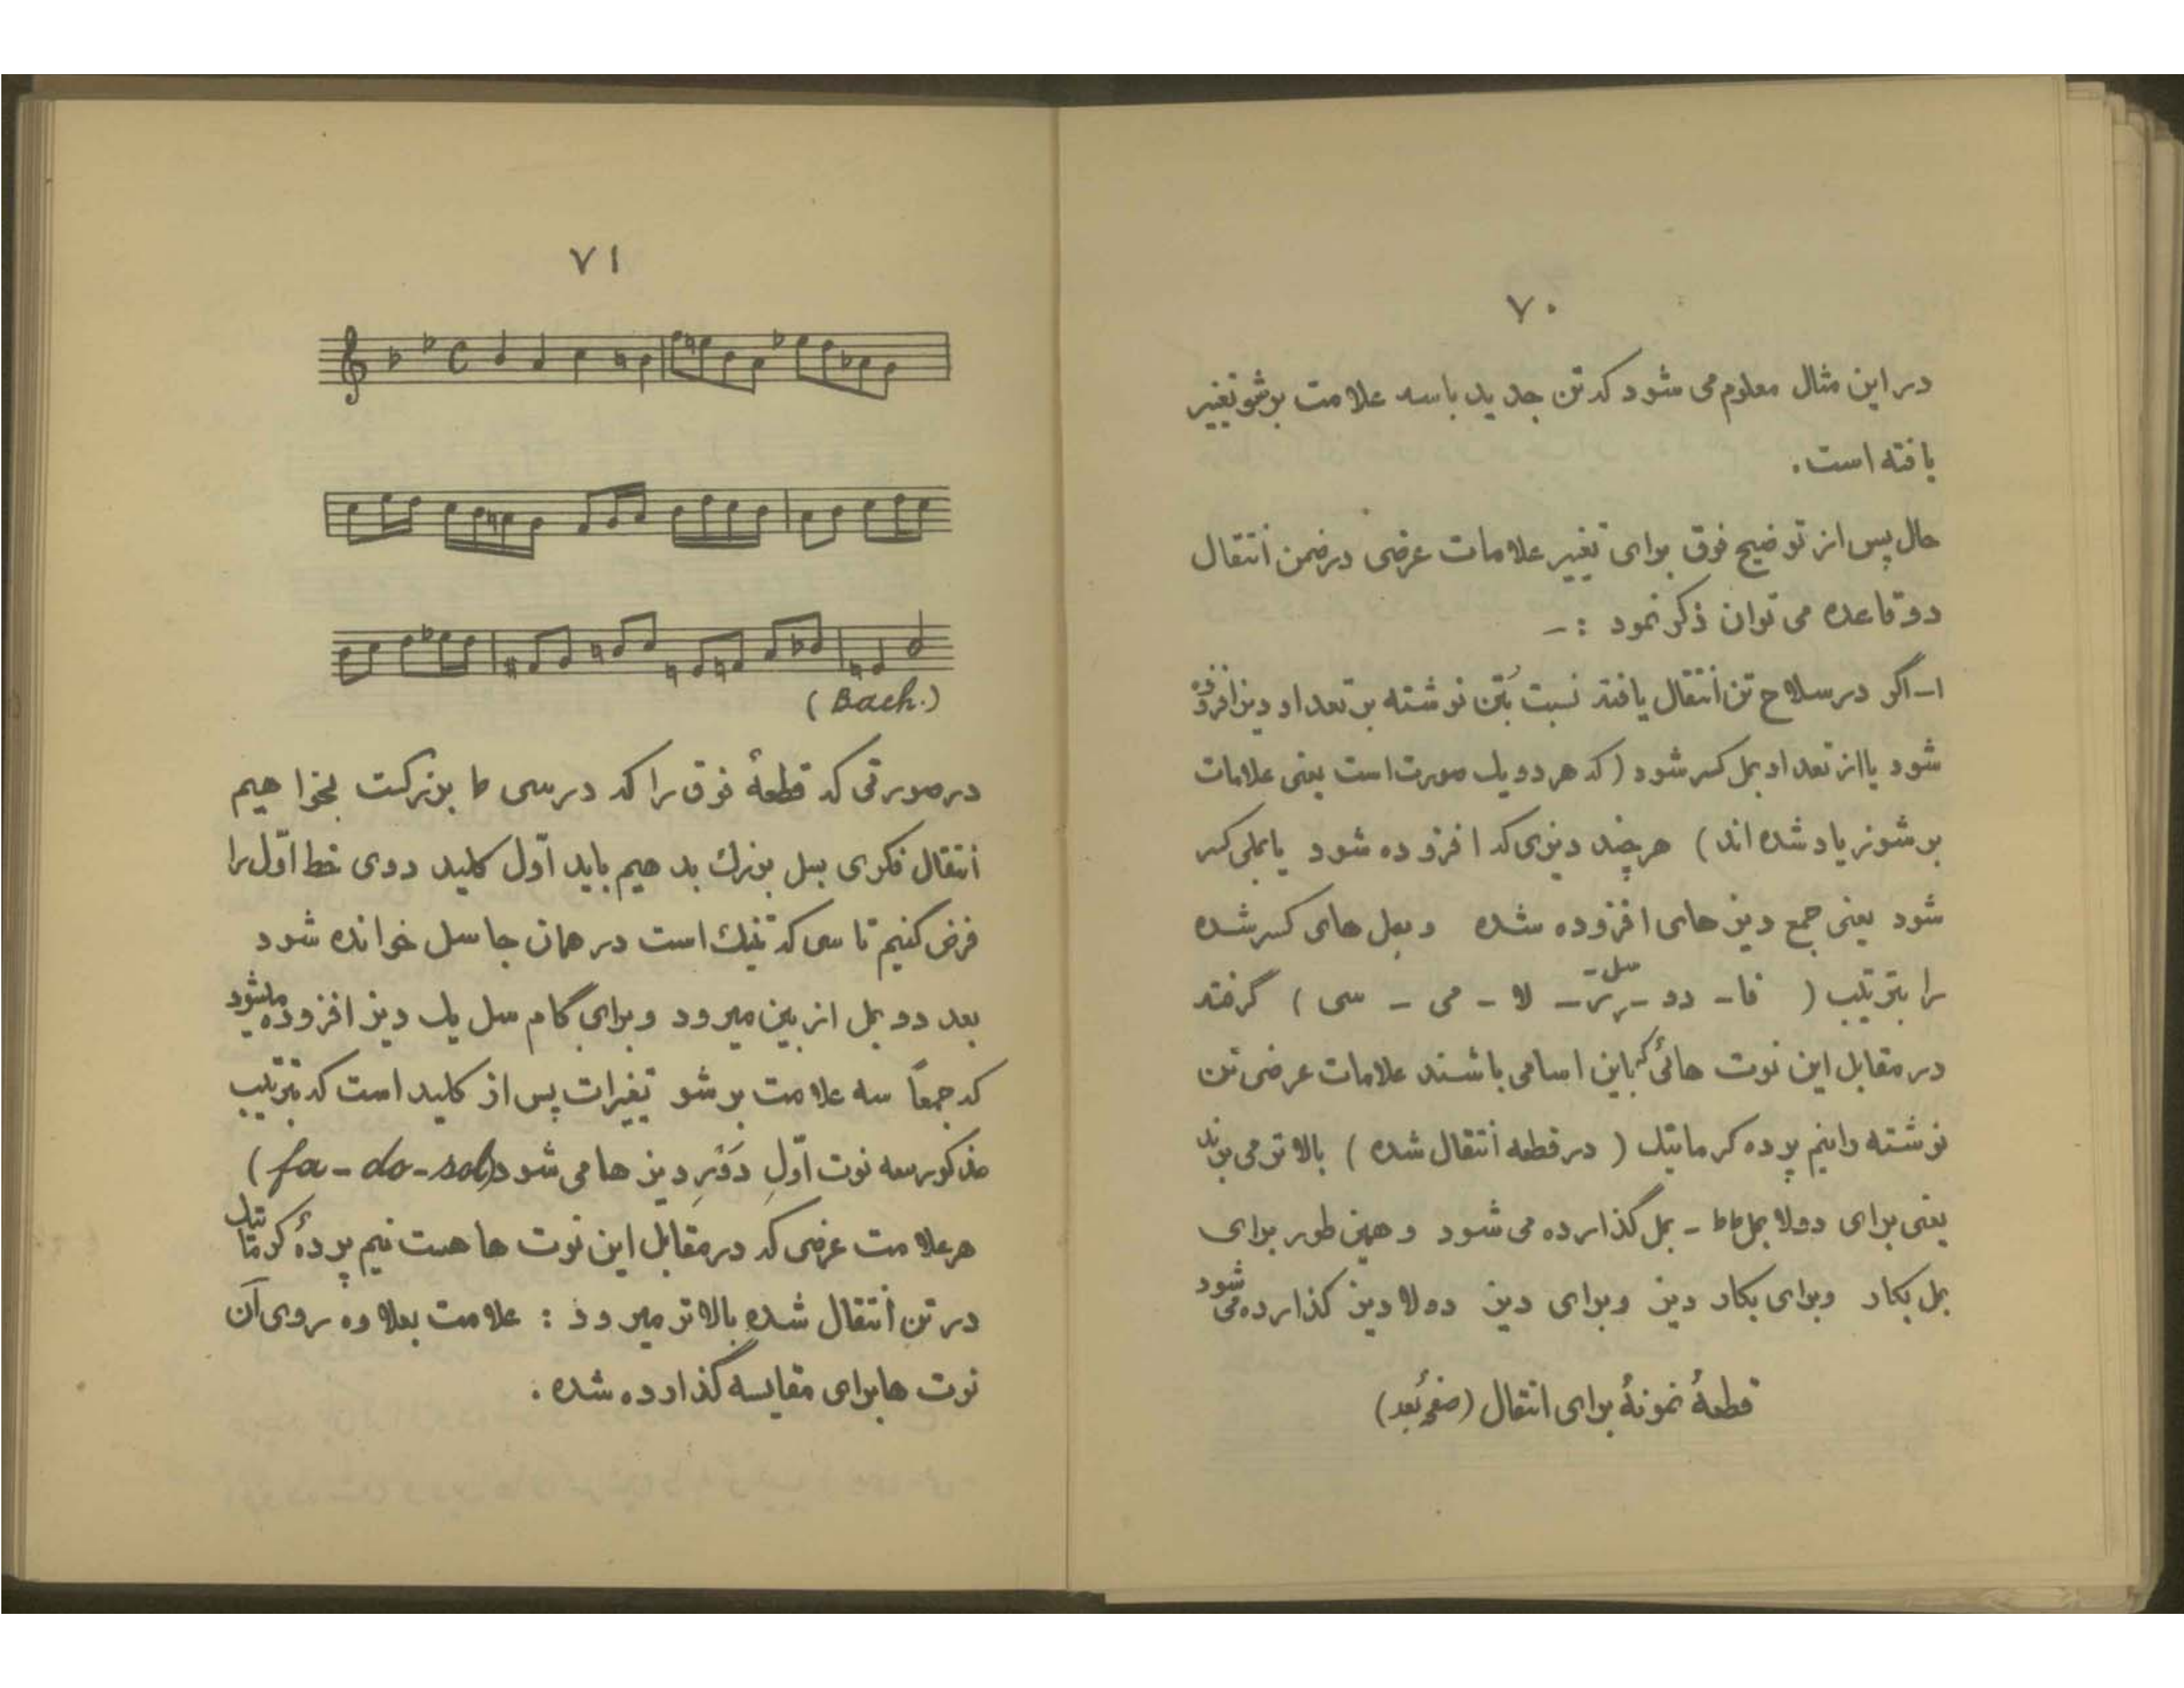 ۷۰
در این مثال معلوم می شود که تن جدید با سه علامت برشو تغییر
یافته است.
حال پس از توضیح فوق برای تغییر علامات عرضی در ضمن انتقال
دو قاعده می توان ذکر نمود :-
۱- اگر در سلاح تن انتقال یافته نسبت بتن نوشته بر تعداد دیز افزوده
شود یا از تعداد بمل کسر شود (که هر دو یک صورت است یعنی علامات
بر شو زیاد شده اند) هر چند دیزی که افزوده شود یا بملی کسر
شود یعنی جمع دیز های افزوده شده و بمل های کسر شده
را بترتیب ( فا - دو - سل - ر - لا - می - سی ) گرفته
در مقابل این نوت هائی که باین اسامی باشند علامات عرضی تن
نوشته را نیم پرده کرماتیک ( در قطعه انتقال شده ) بالاتر می برند
یعنی برای دولا بمل bb - بمل گذارده می شود و همین طور برای
بمل بکار و برای بکار دیز و برای دیز دولا دیز گذارده می شود
قطعهٔ نمونهٔ برای انتقال (صفحهٔ بعد)
۷۱
(Bach.)
در صورتی که قطعهٔ فوق را که در سی b بزرگست بخواهیم
انتقال فکری بسل بزرک بدهیم باید اوّل کلید دوی خط اوّل را
فرض کنیم تا سی که تنیک است در همان جا سل خوانده شود
بعد دو بمل از بین میرود و برای گام سل یک دیز افزوده میشود
که جمعاً سه علامت بر شو تغیرات پس از کلید است که بترتیب
مذکور سه نوت اوّلِ دَوْرِ دیز ها می شود (fa - do - sol)
هر علامت عرضی که در مقابل این نوت ها هست نیم پردهٔ کرماتیک
در تنِ انتقال شده بالاتر میرود : علامت بعلاوه روی آن
نوت ها برای مقایسه گذارده شده .